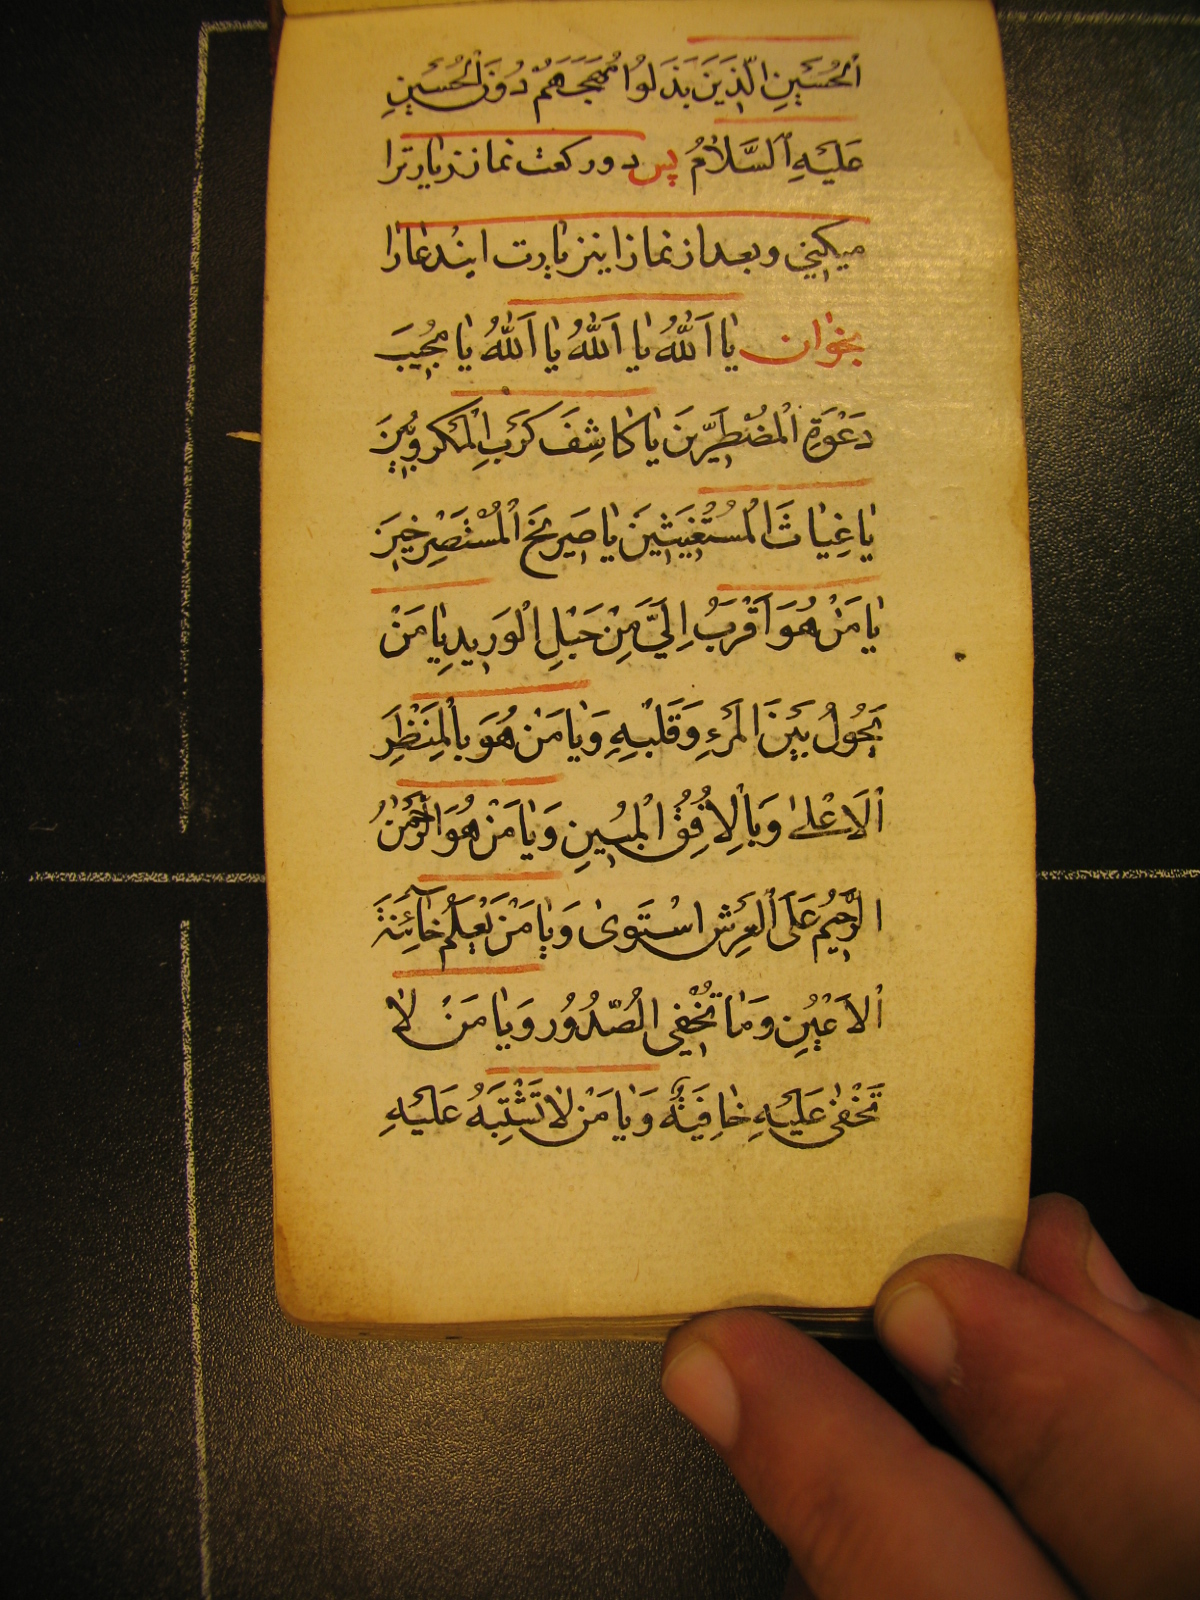 اَلْحُسَيْنِ الَّذِيْنَ بَذَلُوا مُهَجَهُمْ دُوْنَ الْحُسَيْنِ
عَلَيْهِ السَّلَامُ پس دو ركعت نماز زيارترا
ميكني و بعد از نماز اين زيارت ايندعارا
بخوان يَا اَللّٰهُ يَا اَللّٰهُ يَا اَللّٰهُ يَا مُجِيْبَ
دَعْوَةِ الْمُضْطَرِّيْنَ يَا كَاشِفَ كَرْبِ الْمَكْرُوْبِيْنَ
يَا غِيَاثَ الْمُسْتَغِيْثِيْنَ يَا صَرِيْخَ الْمُسْتَصْرِخِيْنَ
يَا مَنْ هُوَ اَقْرَبُ اِلَيَّ مِنْ حَبْلِ الْوَرِيْدِ يَا مَنْ
يَحُوْلُ بَيْنَ الْمَرْءِ وَقَلْبِهِ وَيَا مَنْ هُوَ بِالْمَنْظَرِ
الْاَعْلٰى وَبِالْاُفُقِ الْمُبِيْنِ وَيَا مَنْ هُوَ الرَّحْمٰنُ
الرَّحِيْمُ عَلَى الْعَرْشِ اسْتَوٰى وَيَا مَنْ يَعْلَمُ خَآئِنَةَ
الْاَعْيُنِ وَمَا تُخْفِي الصُّدُوْرُ وَيَا مَنْ لَا
تَخْفٰى عَلَيْهِ خَافِيَةٌ وَيَا مَنْ لَا تَشْتَبِهُ عَلَيْهِ